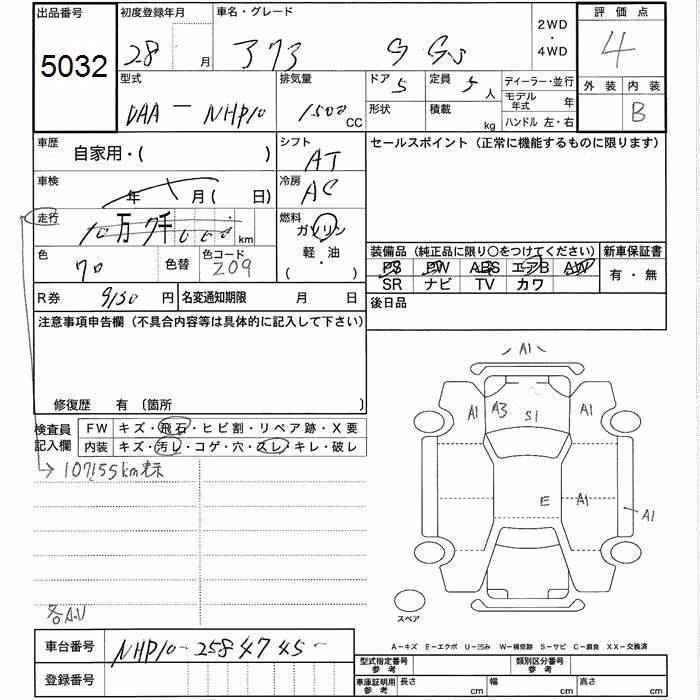 出品番号 初度登録年月 車名・グレード 2WD・4WD 評価点
5032 28 月 G GS 4
型式 排気量 ドア 5 定員 5 人 ディーラー・並行 外装 内装
DAA - NHP10 1500 CC 形状 積載 kg モデル年式 年 B
ハンドル 左・右
車歴 自家用・( ) シフト AT セールスポイント (正常に機能するものに限ります)
車検 年 月( 日) 冷房 AC
走行 10万7千 km 燃料 ガソリン 軽・油 ( )
色 70 色替 色コード 209
装備品 (純正品に限り〇をつけてください) 新車保証書
PS PW ABS エアB AW 有・無
SR ナビ TV カワ
R券 9130 円 名変通知期限 月 日 後日品
注意事項申告欄 (不具合内容等は具体的に記入して下さい)
修復歴 有 〔箇所 〕
検査員記入欄 FW キズ・飛石・ヒビ割・リペア跡・X要
内装 キズ・汚レ・コゲ・穴・スレ・キレ・破レ
→ 107155km表示
A1
A1 A3 S1 A1
E A1
A1
スペア
各A.U
A-キズ E-エクボ U-凹み W-補修跡 S-サビ C-腐食 XX-交換済
車台番号 NHP10-2584745-
登録番号
型式指定番号 参考 類別区分番号 参考
車庫証明用 参考 長さ cm 幅 cm 高さ cm